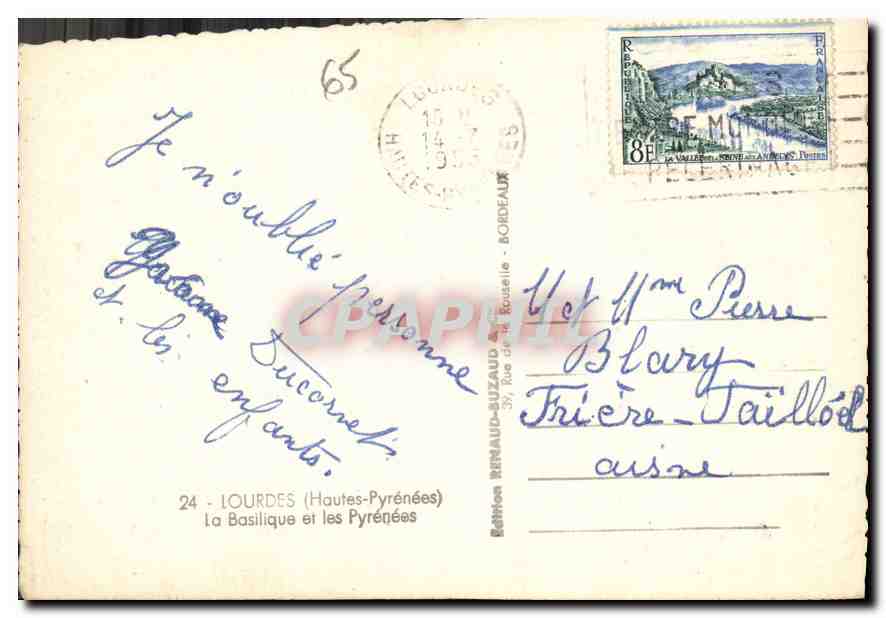 65
LOURDES
15 H
14 - 7
HAUTES-PYRÉNÉES
REPUBLIQUE FRANÇAISE
8F
LA VALLÉE DE LA SEINE AUX ANDELYS POSTES
Je n'oublie personne
Ducornet
et les enfants.
24 - LOURDES (Hautes-Pyrénées)
La Basilique et les Pyrénées
Édition RENAUD-BUZAUD & Cie
39, Rue de la Rousselle - BORDEAUX
M et Mme Pierre
Blary
Frière-Faillöel
aisne
CPAPHIL